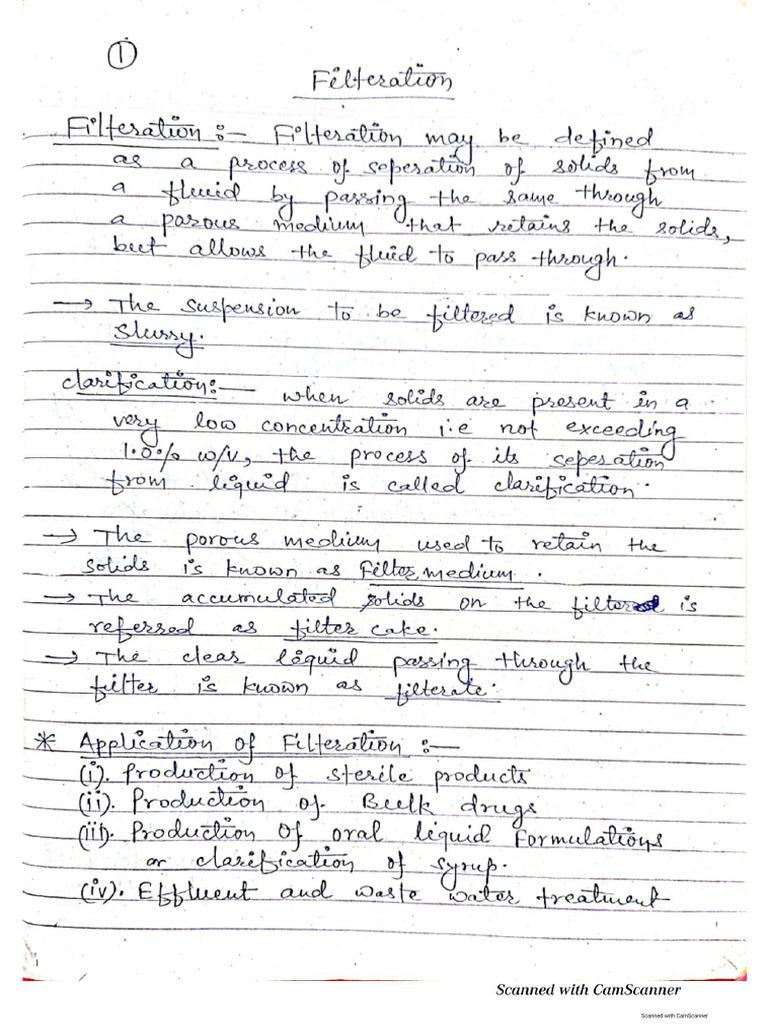 ①
Filteration
Filteration :- Filteration may be defined
as a process of seperation of solids from
a fluid by passing the same through
a porous medium that retains the solids,
but allows the fluid to pass through.
→ The suspension to be filtered is known as
Slurry.
clarification:- when solids are present in a
very low concentration i.e not exceeding
1.0% w/v, the process of its seperation
from liquid is called clarification.
→ The porous medium used to retain the
solids is known as Filter medium.
→ The accumulated solids on the filter is
referred as filter cake.
→ The clear liquid passing through the
filter is known as filterate.
* Application of Filteration :-
(i). Production of sterile products
(ii). Production of Bulk drugs
(iii). Production of oral liquid formulations
or clarification of syrup.
(iv). Effluent and waste water treatment
Scanned with CamScanner
Scanned with CamScanner